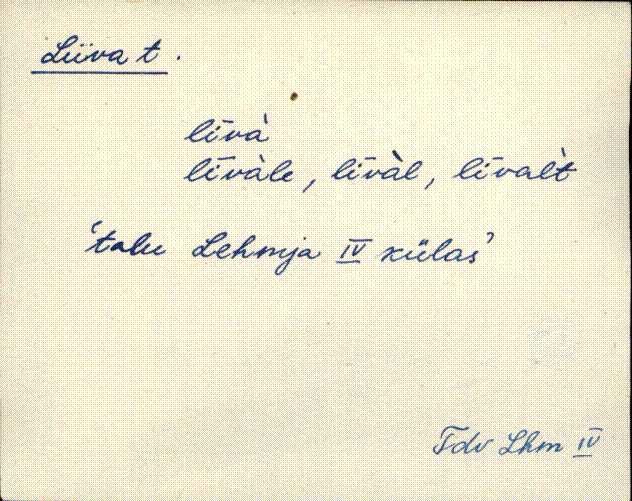 Liiva t.
līvà
līvàle, līvàl, līvalt̀
'talu Lehmja IV külas'
Tdv Lhm IV